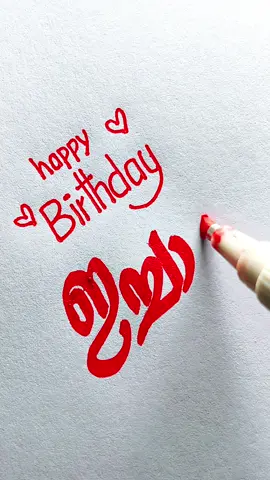 happy
Birthday